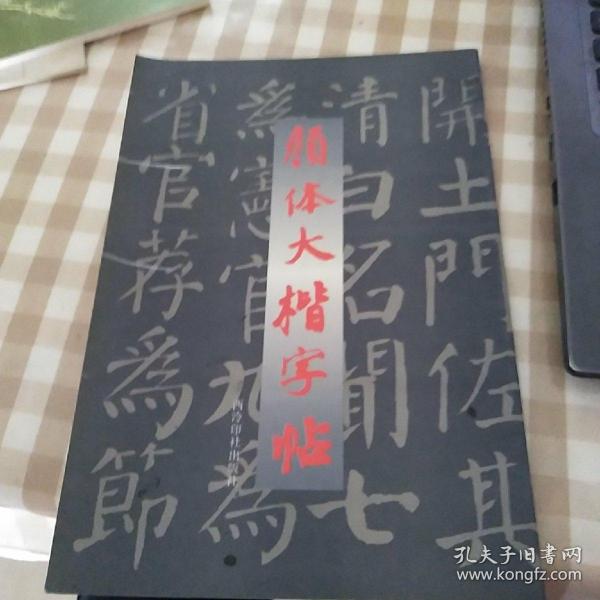 颜体大楷字帖
開土門佐其
清白名聞七
為憲官九為
省官荐為節
西泠印社出版社
孔夫子旧书网
www.kongfz.com